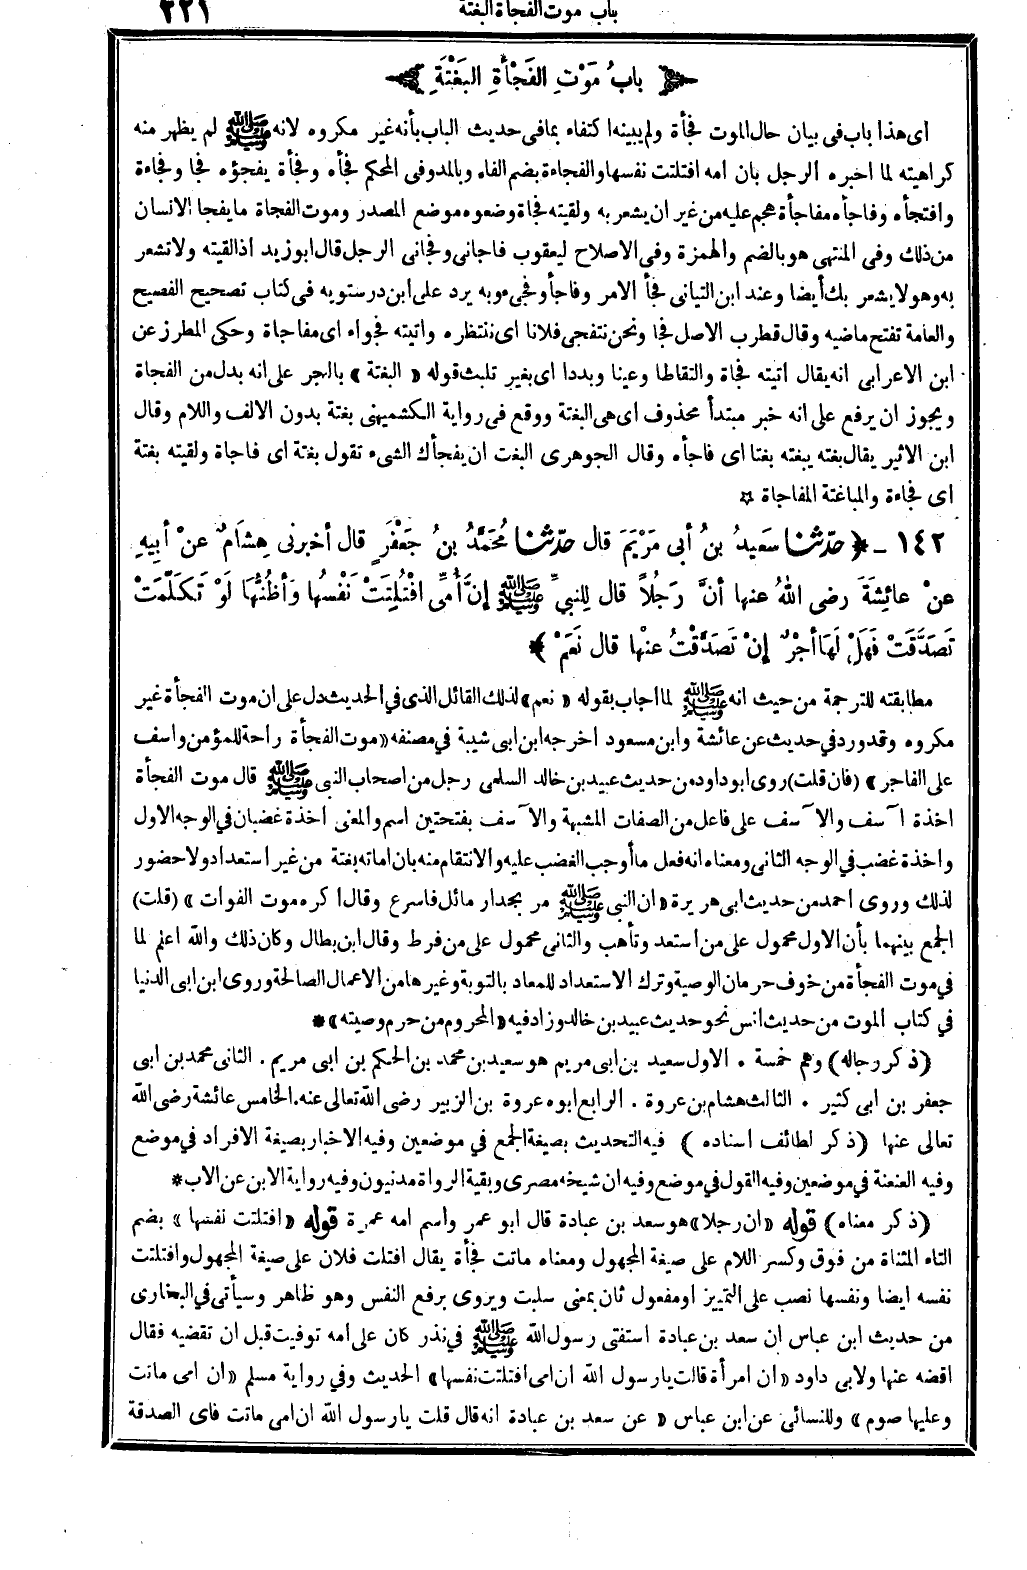 باب موت الفجاة البغتة
٢٢١
باب موت الفجأة البغتة
اى هذا باب فى بيان حال الموت فجأة ولم يبينه اكتفاء بما فى حديث الباب بأنه غير مكروه لانه ﷺ لم يظهر منه
كراهيته لما اخبره الرجل بان امه افتلتت نفسها والفجاءة بضم الفاء وبالمد وفى المحكم فجأه وفجأة يفجؤه فجا وفجاءة
وافتجأه وفاجأه مفاجأة هجم عليه من غير ان يشعر به ولقيته فجاة وضعوه موضع المصدر وموت الفجاة ما يفجا الانسان
من ذلك وفى المنتهى هو بالضم والهمزة وفى الاصلاح ليعقوب فاجانى وفجانى الرجل قال ابو زيد اذا لقيته ولا تشعر
به وهو لا يشعر بك أيضا وعند ابن التيانى فجأ الامر وفاجأ وفجى وبه يرد على ابن درستويه فى كتاب تصحيح الفصيح
والعامة تفتح ماضيه وقال قطرب الاصل فجا ونحن نتفجى فلانا اى ننتظره واتيته فجواء اى مفاجاة وحكى المطرز عن
ابن الاعرابى انه يقال اتيته فجاة والتقاطا وعينا وبددا اى بغير تلبث قوله « البغتة » بالجر على انه بدل من الفجاة
ويجوز ان يرفع على انه خبر مبتدأ محذوف اى هى البغتة ووقع فى رواية الكشميهنى بغتة بدون الالف واللام وقال
ابن الاثير يقال بغته يبغته بغتا اى فاجأه وقال الجوهرى البغت ان يفجأك الشىء تقول بغتة اى فاجاة ولقيته بغتة
اى فجاءة والمباغتة المفاجاة ☆
١٤٢ - ﴿ حدّثنا سَعِيدُ بنُ أبى مَرْيَمَ قال حدّثنا مُحَمَّدُ بنُ جَعْفَرٍ قال أخبرنى هِشَامٌ عنْ أبِيهِ
عنْ عائِشَةَ رضى اللهُ عنها أنَّ رَجُلاً قال لِلنبيِّ ﷺ إنَّ أُمِّى افْتُلِتَتْ نَفْسُها وَأظُنُّهَا لَوْ تَكلَّمَتْ
تَصَدَّقَتْ فَهَلْ لَها أجْرٌ إنْ تَصَدَّقْتُ عنْها قال نَعَمْ ﴾
مطابقته للترجمة من حيث انه ﷺ لما اجاب بقوله « نعم » لذلك القائل الذى في الحديث دل على ان موت الفجأة غير
مكروه وقد ورد في حديث عن عائشة وابن مسعود اخرجه ابن ابى شيبة في مصنفه « موت الفجأة راحة للمؤمن واسف
على الفاجر » (فان قلت) روى ابو داود من حديث عبيد بن خالد السلمى رجل من اصحاب النبى ﷺ قال موت الفجأة
اخذة آسف والآسف على فاعل من الصفات المشبهة والآسف بفتحتين اسم والمعنى اخذة غضبان في الوجه الاول
واخذة غضب في الوجه الثانى ومعناه انه فعل ما أوجب الغضب عليه والانتقام منه بان اماته بغتة من غير استعداد ولا حضور
لذلك وروى احمد من حديث ابى هريرة « ان النبى ﷺ مر بجدار مائل فاسرع وقال اكره موت الفوات » (قلت)
الجمع بينهما بأن الاول محمول على من استعد وتأهب والثانى محمول على من فرط وقال ابن بطال وكان ذلك والله اعلم لما
في موت الفجأة من خوف حرمان الوصية وترك الاستعداد للمعاد بالتوبة وغيرها من الاعمال الصالحة وروى ابن ابى الدنيا
في كتاب الموت من حديث انس نحو حديث عبيد بن خالد وزاد فيه « المحروم من حرم وصيته » *
(ذكر رجاله) وهم خمسة . الاول سعيد بن ابى مريم هو سعيد بن محمد بن الحكم بن ابى مريم . الثانى محمد بن ابى
جعفر بن ابى كثير . الثالث هشام بن عروة . الرابع ابوه عروة بن الزبير رضى الله تعالى عنه . الخامس عائشة رضى الله
تعالى عنها (ذكر لطائف اسناده ) فيه التحديث بصيغة الجمع في موضعين وفيه الاخبار بصيغة الافراد في موضع
وفيه العنعنة في موضعين وفيه القول في موضع وفيه ان شيخه مصرى وبقية الرواة مدنيون وفيه رواية الابن عن الاب *
(ذكر معناه) قوله « ان رجلا » هو سعد بن عبادة قال ابو عمر واسم امه عمرة قوله « افتلتت نفسها » بضم
التاء المثناة من فوق وكسر اللام على صيغة المجهول ومعناه ماتت فجأة يقال افتلت فلان على صيغة المجهول وافتلتت
نفسه ايضا ونفسها نصب على التمييز او مفعول ثان بمعنى سلبت ويروى برفع النفس وهو ظاهر وسيأتى في البخارى
من حديث ابن عباس ان سعد بن عبادة استفتى رسول الله ﷺ في نذر كان على امه توفيت قبل ان تقضيه فقال
اقضه عنها ولابى داود « ان امرأة قالت يا رسول الله ان امى افتلتت نفسها » الحديث وفي رواية مسلم « ان امى ماتت
وعليها صوم » وللنسائى عن ابن عباس « عن سعد بن عبادة انه قال قلت يا رسول الله ان امى ماتت فاى الصدقة